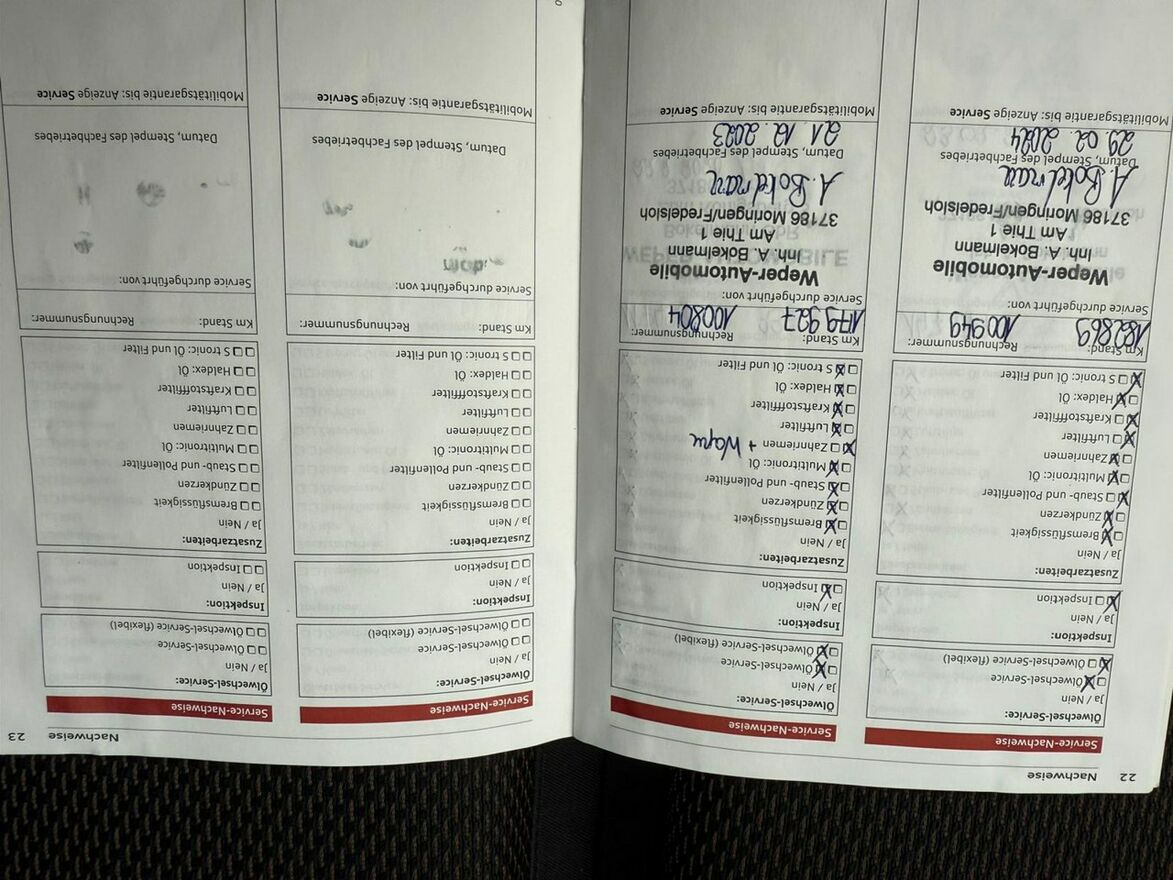 22 Nachweise
Service-Nachweise
Ölwechsel-Service:
Ja / Nein
Ölwechsel-Service
Ölwechsel-Service (flexibel)
Inspektion:
Ja / Nein
Inspektion
Zusatzarbeiten:
Ja / Nein
Bremsflüssigkeit
Zündkerzen
Staub- und Pollenfilter
Multitronic: Öl
Zahnriemen
Luftfilter
Kraftstofffilter
Haldex: Öl
S tronic: Öl und Filter
Km Stand: Rechnungsnummer:
182869 100949
Service durchgeführt von:
Weper-Automobile
Inh. A. Bokelmann
Am Thie 1
37186 Moringen/Fredelsloh
A. Bokelmann
Datum, Stempel des Fachbetriebes
29.02.2024
Mobilitätsgarantie bis: Anzeige Service
Service-Nachweise
Ölwechsel-Service:
Ja / Nein
Ölwechsel-Service
Ölwechsel-Service (flexibel)
Inspektion:
Ja / Nein
Inspektion
Zusatzarbeiten:
Ja / Nein
Bremsflüssigkeit
Zündkerzen
Staub- und Pollenfilter
Multitronic: Öl
Zahnriemen + Wapu
Luftfilter
Kraftstofffilter
Haldex: Öl
S tronic: Öl und Filter
Km Stand: Rechnungsnummer:
179927 100804
Service durchgeführt von:
Weper-Automobile
Inh. A. Bokelmann
Am Thie 1
37186 Moringen/Fredelsloh
A. Bokelmann
Datum, Stempel des Fachbetriebes
21.12.2023
Mobilitätsgarantie bis: Anzeige Service
Nachweise 23
Service-Nachweise
Ölwechsel-Service:
Ja / Nein
Ölwechsel-Service
Ölwechsel-Service (flexibel)
Inspektion:
Ja / Nein
Inspektion
Zusatzarbeiten:
Ja / Nein
Bremsflüssigkeit
Zündkerzen
Staub- und Pollenfilter
Multitronic: Öl
Zahnriemen
Luftfilter
Kraftstofffilter
Haldex: Öl
S tronic: Öl und Filter
Km Stand: Rechnungsnummer:
Service durchgeführt von:
Datum, Stempel des Fachbetriebes
Mobilitätsgarantie bis: Anzeige Service
Service-Nachweise
Ölwechsel-Service:
Ja / Nein
Ölwechsel-Service
Ölwechsel-Service (flexibel)
Inspektion:
Ja / Nein
Inspektion
Zusatzarbeiten:
Ja / Nein
Bremsflüssigkeit
Zündkerzen
Staub- und Pollenfilter
Multitronic: Öl
Zahnriemen
Luftfilter
Kraftstofffilter
Haldex: Öl
S tronic: Öl und Filter
Km Stand: Rechnungsnummer:
Service durchgeführt von:
Datum, Stempel des Fachbetriebes
Mobilitätsgarantie bis: Anzeige Service